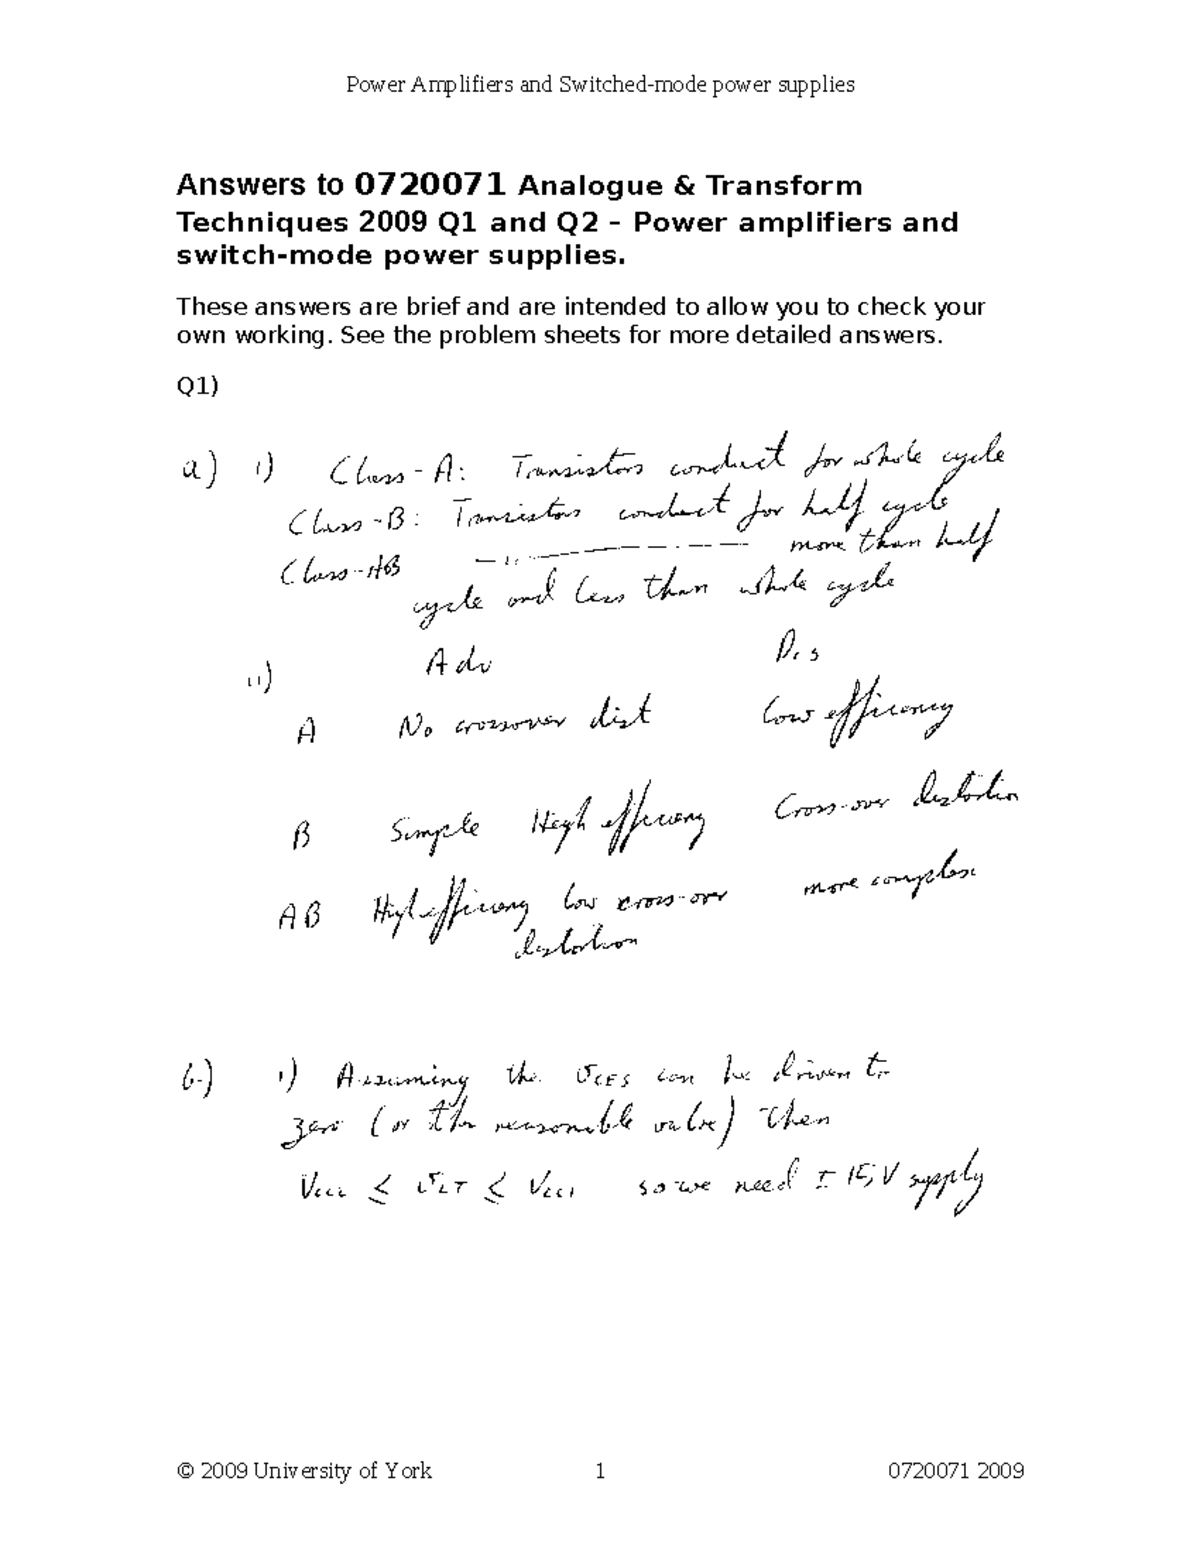 Power Amplifiers and Switched-mode power supplies
Answers to 0720071 Analogue & Transform
Techniques 2009 Q1 and Q2 – Power amplifiers and
switch-mode power supplies.
These answers are brief and are intended to allow you to check your
own working. See the problem sheets for more detailed answers.
Q1)
a) i) Class-A: Transistors conduct for whole cycle
Class-B: Transistors conduct for half cycle
Class-AB — ,, — more than half
cycle and less than whole cycle
ii) Adv Dis
A No crossover dist Low efficency
B Simple High efficiency Cross-over distortion
AB High efficiency low cross-over more complex
distortion
b) i) Assuming the vCES can be driven to
zero (or the reasonable value) then
≤ ≤ so we need ± 15V supply
© 2009 University of York 1 0720071 2009